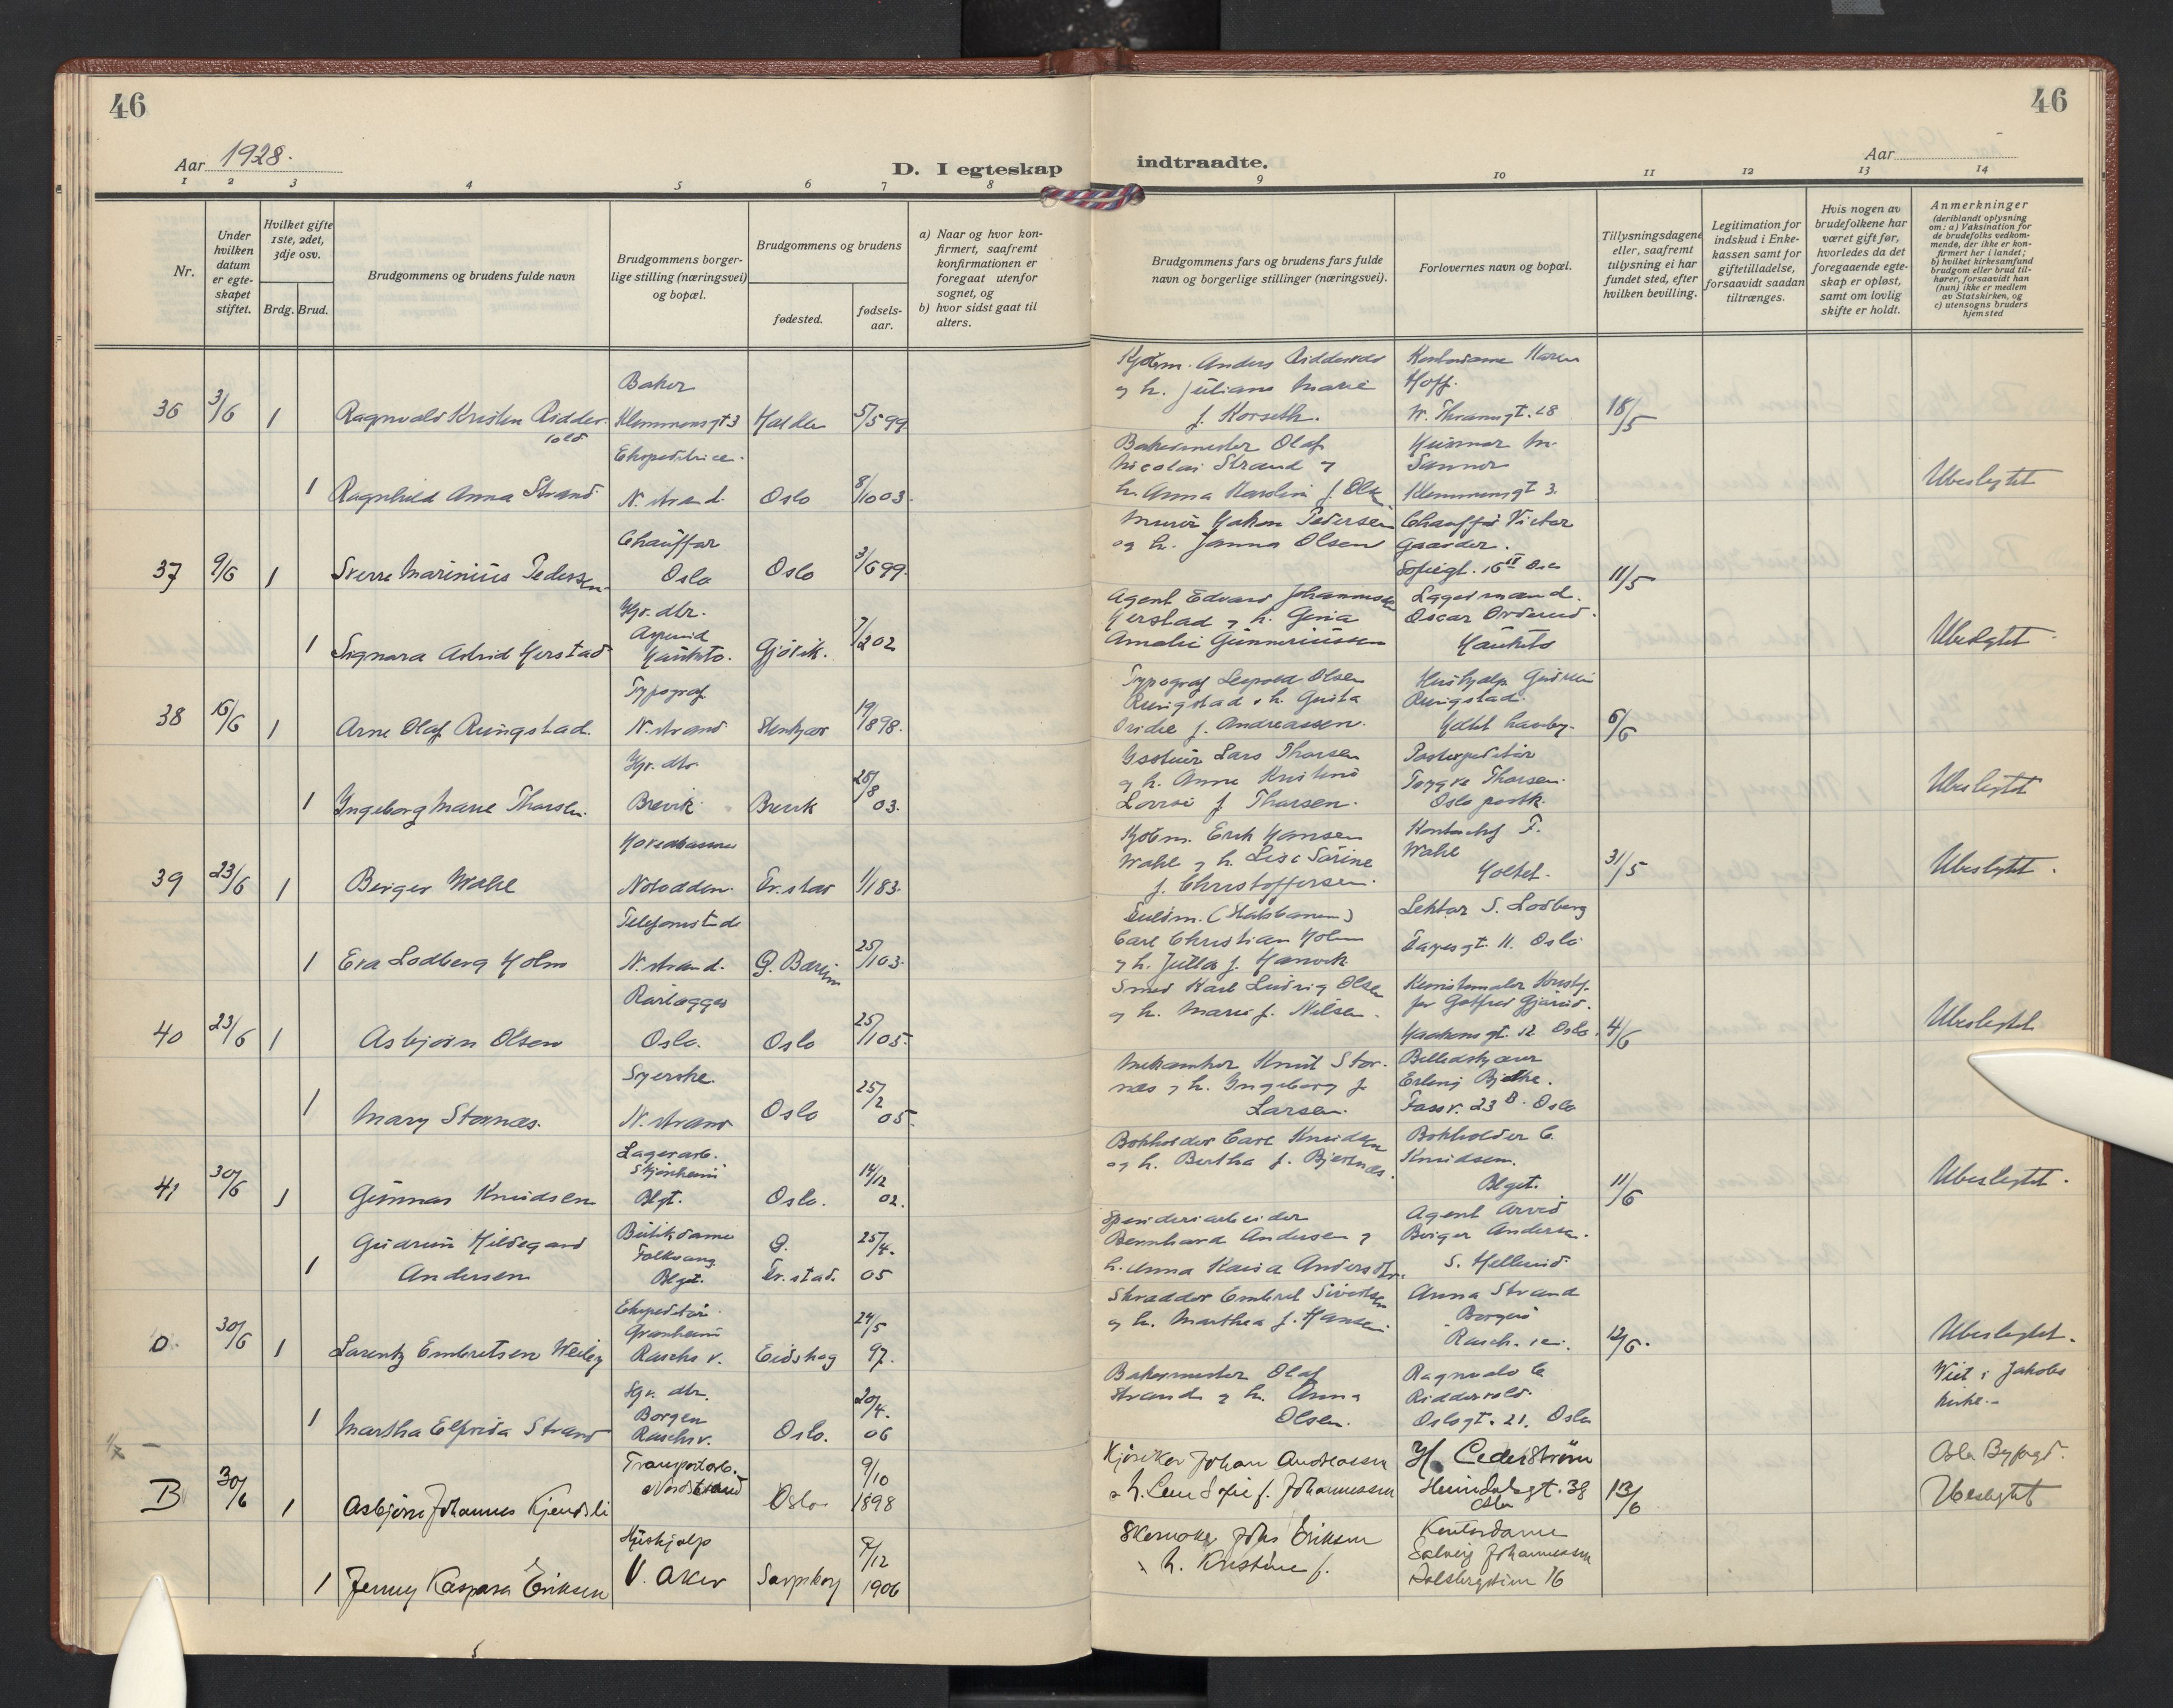 46
46
Aar 1928.
D. I egteskap
indtraadte.
Aar
1 2 3 4 5 6 7 8
9 10 11 12 13 14
Nr.
Under hvilken datum er egteskapet stiftet.
Hvilket gifte 1ste, 2det, 3dje osv.
Brdg. Brud.
Brudgommens og brudens fulde navn
Brudgommens borgerlige stilling (næringsvei) og bopæl.
Brudgommens og brudens
fødested.
fødselsaar.
a) Naar og hvor konfirmert, saafremt konfirmationen er foregaat utenfor sognet, og
b) hvor sidst gaat til alters.
Brudgommens fars og brudens fars fulde navn og borgerlige stillinger (næringsvei).
Forlovernes navn og bopæl.
Tillysningsdagene eller, saafremt tillysning ei har fundet sted, efter hvilken bevilling.
Legitimation for indskud i Enkekassen samt for giftetilladelse, forsaavidt saadan tiltrænges.
Hvis nogen av brudefolkene har været gift før, hvorledes da det foregaaende egteskap er opløst, samt om lovlig skifte er holdt.
Anmerkninger
(deriblandt oplysning om: a) Vaksination for de brudefolks vedkommende, der ikke er konfirmert her i landet; b) hvilket kirkesamfund brudgom eller brud tilhører, forsaavidt han (hun) ikke er medlem av Statskirken, og c) utensogns bruders hjemsted
36 3/6 1 Ragnvald Kristen Riddervold
Baker Klemmensgt 3 Halden 5/5 99
Kjøbm. Anders Riddervold
og h. Juliane Marie
f. Korseth.
Kontordame Karen
Hoff.
W. Thranesgt. 28
18/5
1 Ragnhild Anna Strand
Ekspeditrice. N. strand. Oslo 8/10 03.
Bakermester Olaf
Nicolai Strand og
h. Anna Karoline f. Olsen
Gunnar M.
Sannor
Klemmensgt 3.
Ubeslegtet
37 9/6 1 Sverre Marinius Pedersen
Chauffør Oslo Oslo 3/6 99.
Murer Hakon Pedersen
og h. Janna Olsen
Chauffør Victor
Gaarder.
Sofiegt. 16 II Oslo
11/5
1 Signora Astrid Herstad
Hgv. dtr.
Hauketo. Gjøvik. 7/2 02
Agent Edvard Johannesen
Herstad og h. Gina
Amalie Gunneriussen
Lagermand.
Oscar Orderud.
Hauketo
Ubeslegtet
38 16/6 1 Arne Olaf Rungstad.
Typograf N. strand Stenkjær 19/8 98.
Typograf Leopold Olsen
Rungstad o h. Gusta
Ovidie f. Andreassen.
Hushjelp Gudrun
Rungstad.
Holtet
6/6
1 Ingeborg Marie Thorsen.
Hgv. dtr Brevik. Brevik 28/8 03.
Lars Thorsen
og h. Anne Kristine
Lovise f. Thorsen.
Postexpeditør
Trygve Thorsen.
Oslo postk.
Ubeslegtet
39 23/6 1 Berger Wahl
Hovedkasserer Notodden. Fr.stad 1/1 83.
Kjøbm. Erik Hansen
Wahl og h. Lise Sørine
f. Christoffersen.
Kontorchef F.
Wahl
Holtet.
31/5
Ubeslegtet.
1 Eva Lodberg Holm
Telefonistinde N. strand. Ø. Bærum 25/1 03.
Fuldm. (Statsbanen)
Carl Christian Holm
og h. Jutta f.
Lektor S. Lodberg
Fayesgt. 11. Oslo
40 23/6 1 Asbjørn Olsen
Rørlægger Oslo. Oslo 25/1 05.
Smed Karl Ludvig Olsen
og h. Marie f. Nilsen.
Kunstmaler Kristofer Gotfred
Haakonsgt. 12 Oslo.
4/6
Ubeslegtet
1 Mary Stornæs.
Syerske. N. strand Oslo 25/2 05.
Mekaniker Knut Stornæs og h. Ingeborg f.
Larsen.
Billedskjærer
Erling Bjelke.
Fossv. 23 B. Oslo
41 30/6 1 Gunnar Knudsen
Lagerarb.
Skjønheim
Blgt. Oslo. 14/12 02.
Bokholder Carl Knudsen
og h. Bertha f. Bjertnæs.
Bokholder C.
Knudsen.
Blgt.
11/6
Ubeslegtet.
1 Gudrun Hildegard
Andersen
Butikdame
Folkvang
Blgt. Ø. Fr.stad. 25/4. 05
Spenderiarbeider
Bernhard Andersen og
h. Anna Kaisa Andersdtr.
Agent Arvid
Birger Andersen.
S. Hellerud
0. 30/6 1 Larentz Embretsen Weiby
Ekspeditør.
Granheim
Raschs v. Eidskog 24/5 97.
Skrædder Embret Sivertsen
og h. Marthea f. Hansen.
Anna Strand
Borgen
Rasch.
12/6.
Ubeslegtet.
1 Martha Elfrida Strand
Hgv. dtr.
Borgen
Raschsv. Oslo. 20/4. 06
Bakermester Olaf
Strand og h. Anna
Olsen.
Ragnvald C
Riddervold
Oslogt. 21. Oslo
Viet i Jakobs
kirke.
B 30/6 1 Asbjørn Johannes Kjendsli
Transportarb.
Nordstrand Oslo 9/10 1898
Kjøreker Johan Andreassen
o h. Lene Sofie f. Johannessen
H. Cederstrøm
Heimdalsgt. 38
Oslo
13/6
Oslo Byfogd.
Ubeslegtet
1 Jenny Kaspara Eriksen
Hushjelp
V. Aker Sarpsborg 7/12 1906
Skomaker Johs Eriksen
h. Kristine f.
Kontordame
Solveig Johannessen
16